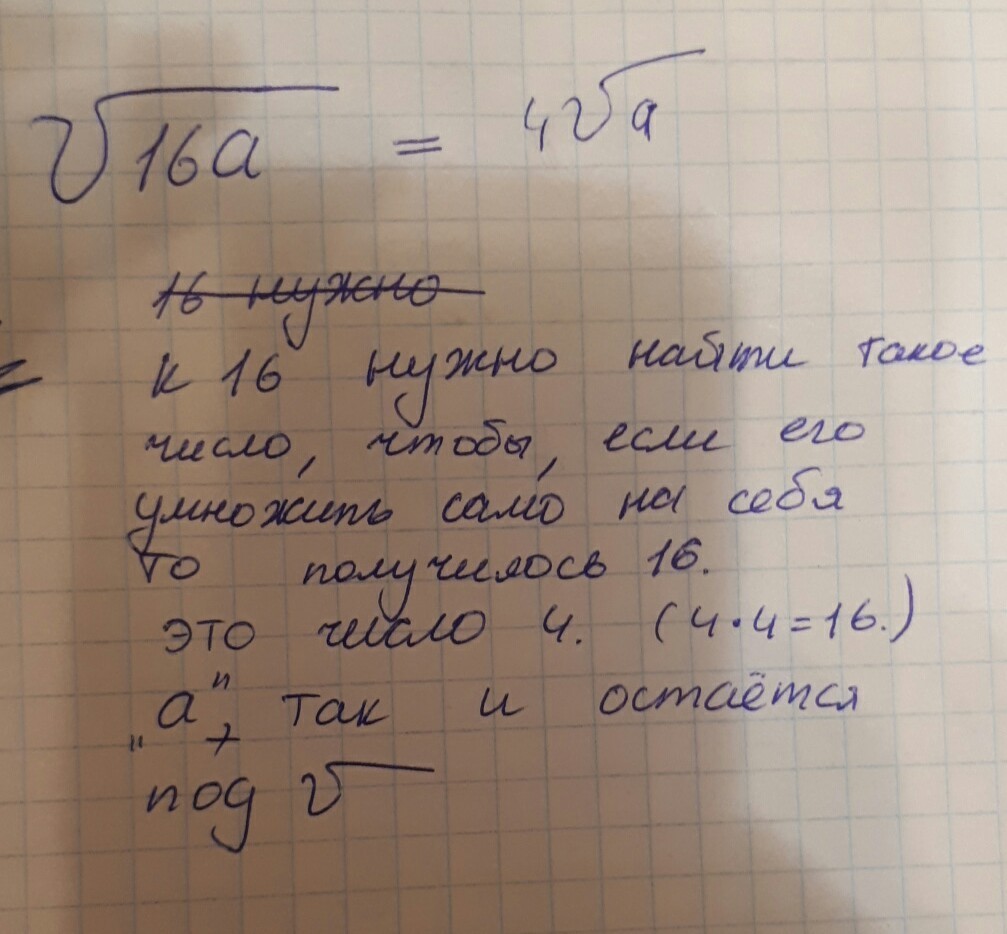 √16a = 4√a
16 нужно
к 16 нужно найти такое
число, чтобы, если его
умножить само на себя
то получилось 16.
это число 4. (4·4=16.)
„а", так и остаётся
под √